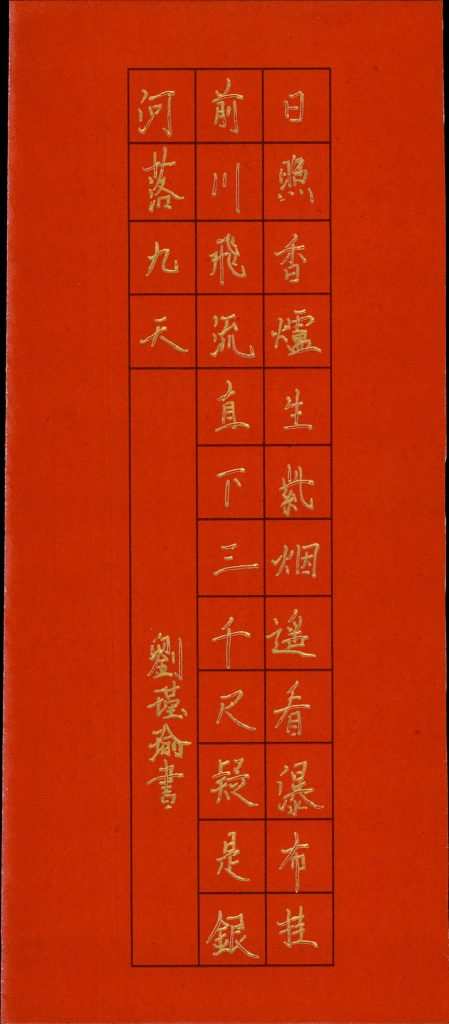 日照香爐生紫烟遥看瀑布挂
前川飛流直下三千尺疑是銀
河落九天
劉瑾瑜書